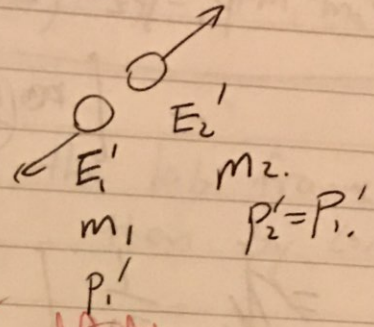 E₂'
E₁' m₂.
m₁ p₂'=p₁.'
p₁'